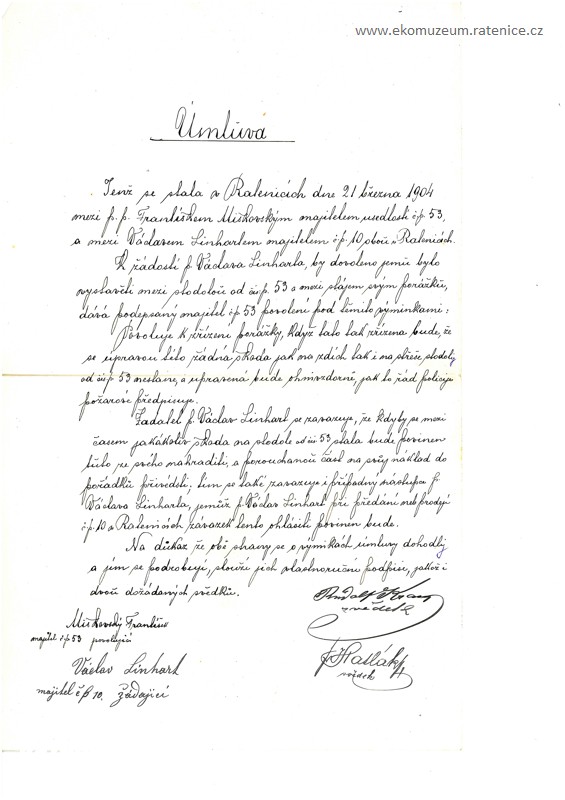 www.ekomuzeum.ratenice.cz
Úmluva
Jenž se stala v Ratenicích dne 21 března 1904
mezi p. p. Františkem Miškovským majitelem usedlosti čp 53,
a mezi Václavem Linhartem majitelem čp. 10 oboù v Ratenicích.
K žádosti p. Václava Linharta, by dovoleno jemu bylo
vystavěti mezi stodolou od čís. p 53 a mezi stájem svým porážku,
dává podepsaný majitel čp 53 povolení pod těmito výminkami:
Povoluje k zřízení porážky, když tato tak zřízena bude, že
se úpravou této žádná škoda jak na zdích tak i na střeše stodoly
od čís p 53 nestane, a upravená bude ohnivzdorně, jak to řád policejn
požarové předpisuje.
Žadatel p. Václav Linhart se zavazuje, že kdyby se mezi
časem jakákoliv škoda na stodole od čís 53 stala bude povinen
tuto ze svého nahraditi, a porouchanou část na svůj náklad do
pořádku přivésti; tím se také zavazuje i případný nástupce p.
Václava Linharta, jemuž p. Václav Linhart při předání neb prodeji
čp 10 v Ratenicích závazek tento ohlásiti povinen bude.
Na důkaz že obě strany se o výminkách úmluvy dohodly
a jim se podrobují, slouží jich vlastnoruční podpise, jakož i
dvou dožádaných svědků.
Rudolf
svědek
Miškovský František
majitel čp 53 povolující
svědek
Václav Linhart
majitel č p 10. žádající